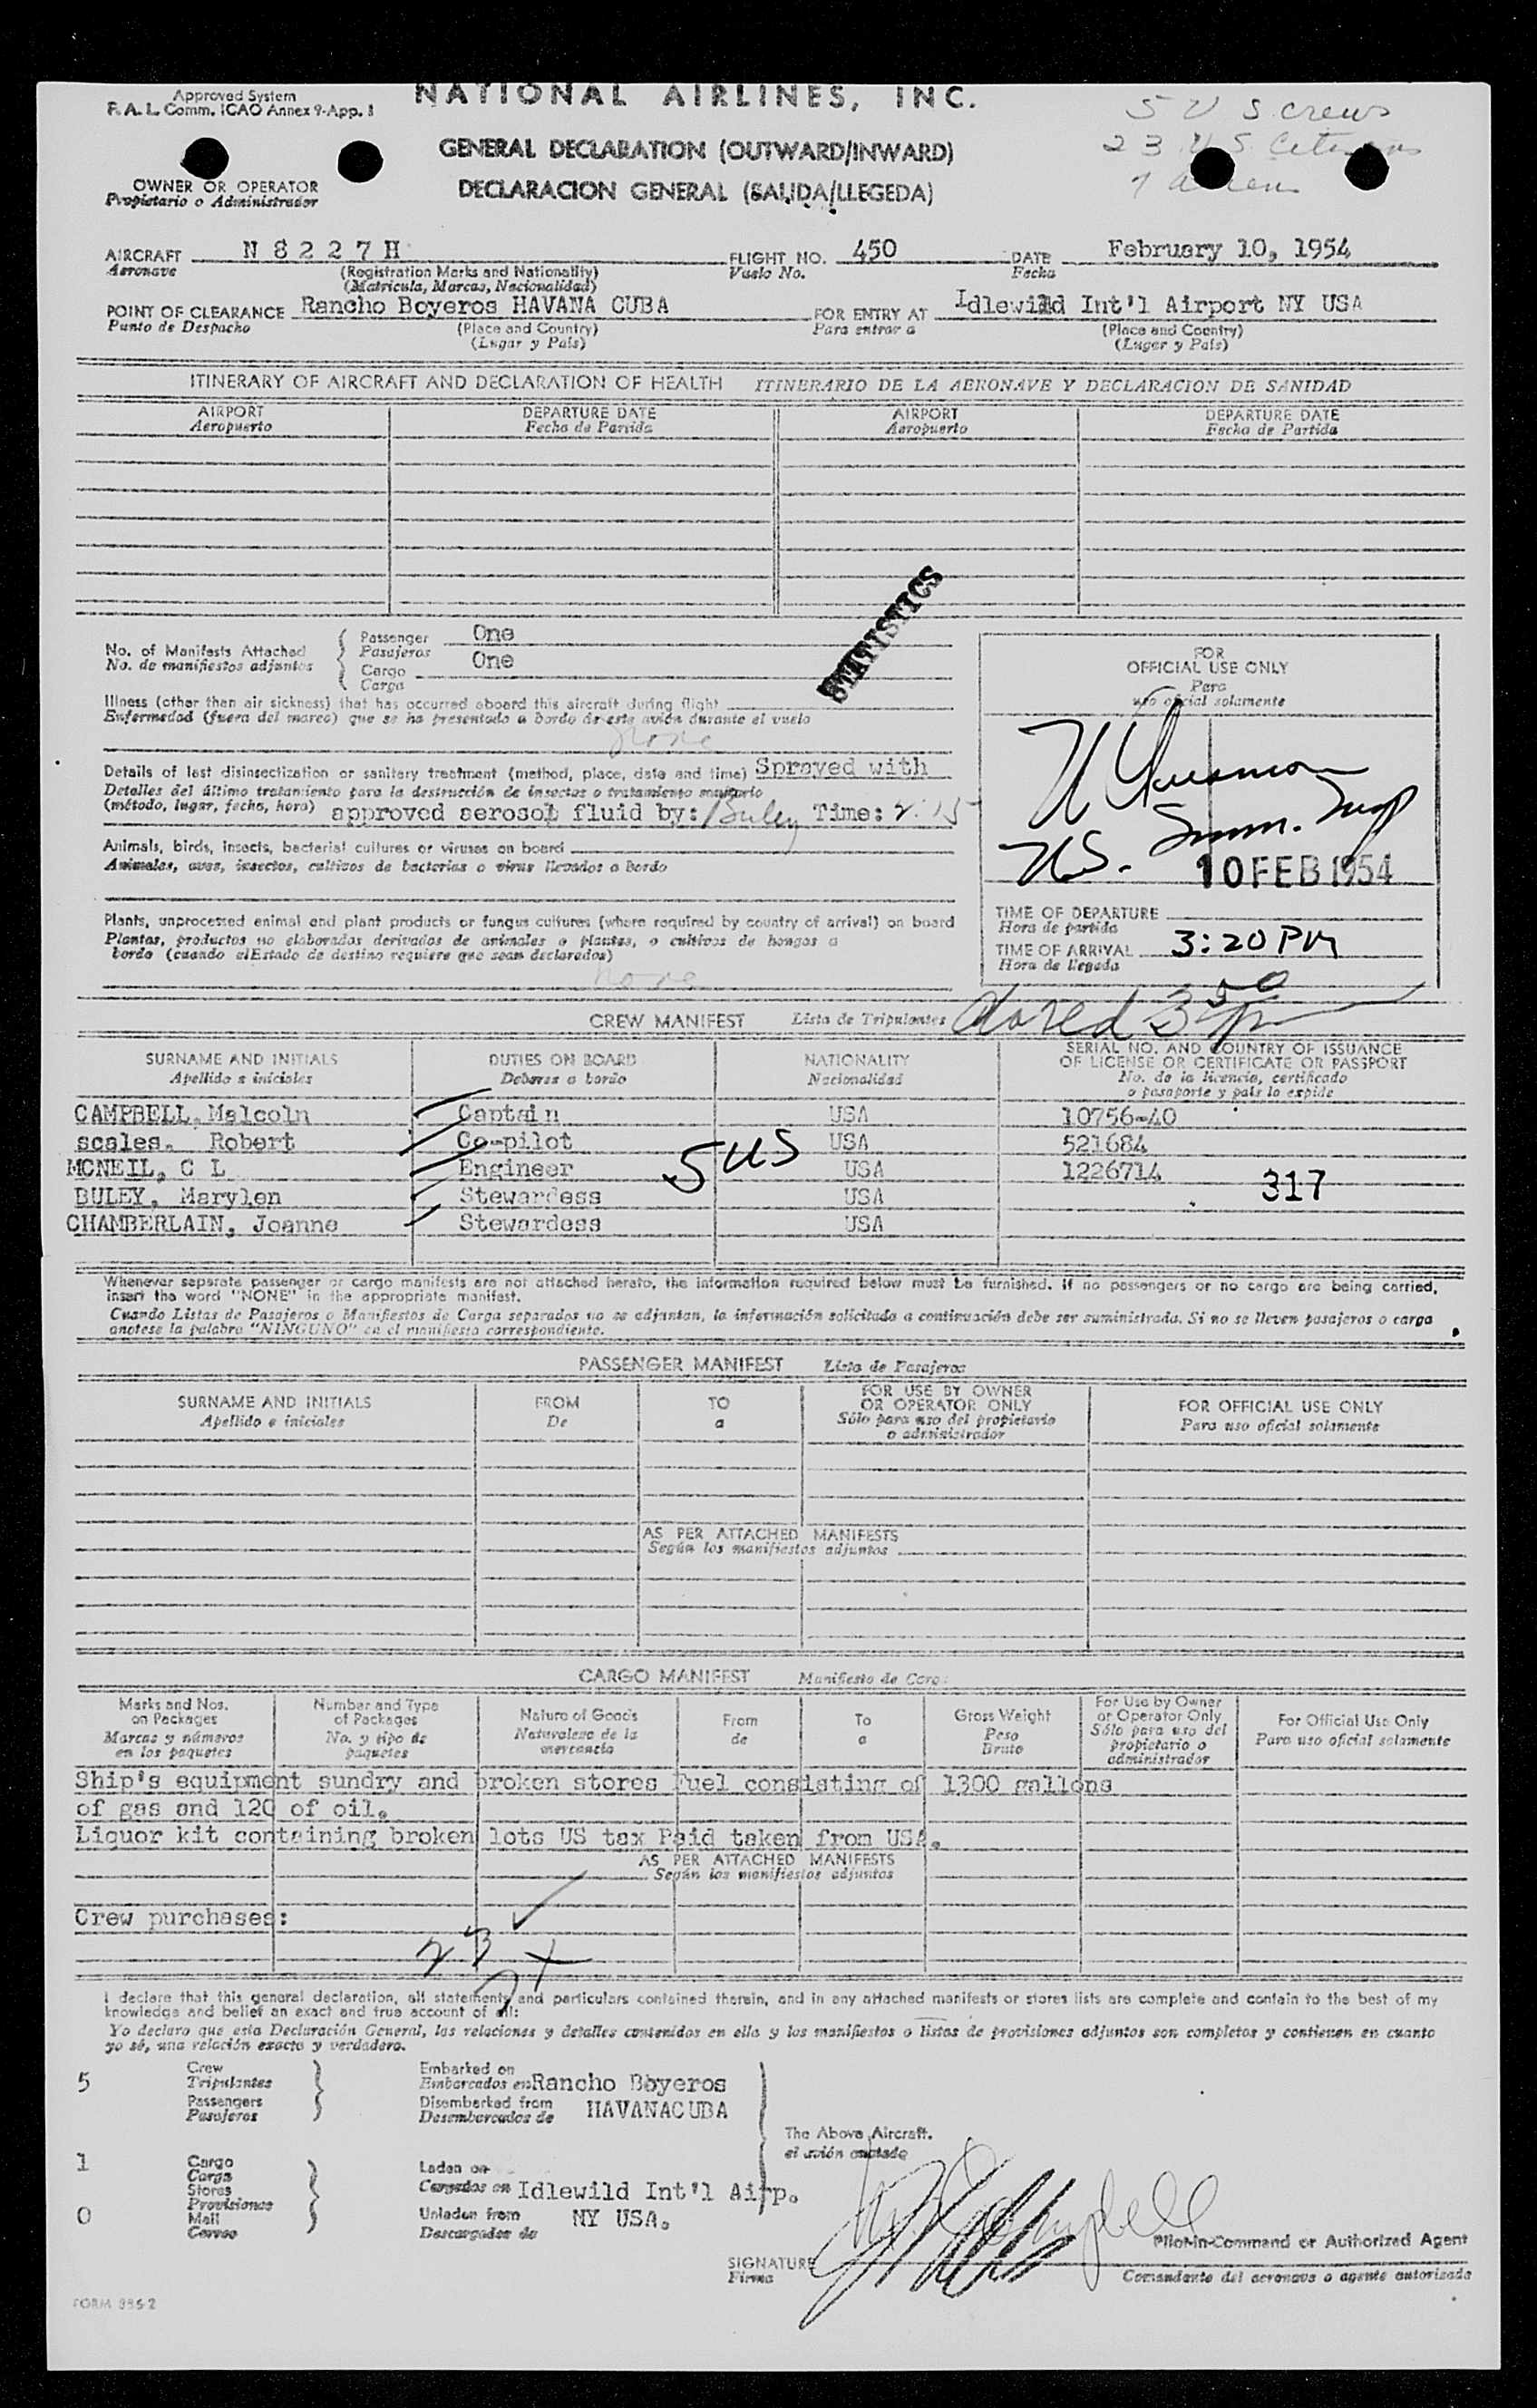 Approved System
F. A. L. Comm. ICAO Annex 9-App. 1
NATIONAL AIRLINES, INC.
5 U S crews
23 U S Citizens
GENERAL DECLARATION (OUTWARD/INWARD)
DECLARACION GENERAL (SALIDA/LLEGEDA)
OWNER OR OPERATOR
Propietario o Administrador
AIRCRAFT N 8 2 2 7 H FLIGHT NO. 450 DATE February 10, 1954
Aeronave (Registration Marks and Nationality) Vuelo No. Fecha
(Matricula, Marcas, Nacionalidad)
POINT OF CLEARANCE Rancho Boyeros HAVANA CUBA FOR ENTRY AT Idlewild Int'l Airport NY USA
Punto de Despacho (Place and Country) Para entrar a (Place and Country)
(Lugar y País) (Lugar y País)
ITINERARY OF AIRCRAFT AND DECLARATION OF HEALTH ITINERARIO DE LA AERONAVE Y DECLARACION DE SANIDAD
AIRPORT DEPARTURE DATE AIRPORT DEPARTURE DATE
Aeropuerto Fecha de Partida Aeropuerto Fecha de Partida
STATISTICS
No. of Manifests Attached
No. de manifiestos adjuntos
Passenger One
Pasajeros
Cargo One
Carga
Illness (other than air sickness) that has occurred aboard this aircraft during flight
Enfermedad (fuera del mareo) que se ha presentado a bordo de este avión durante el vuelo
none
Details of last disinsectization or sanitary treatment (method, place, date and time) Sprayed with
Detalles del último tratamiento para la destrucción de insectos o tratamiento sanitario
(método, lugar, fecha, hora) approved aerosol fluid by: Buley Time: 2:15
Animals, birds, insects, bacterial cultures or viruses on board
Animales, aves, insectos, cultivos de bacterias o virus llevados a bordo
Plants, unprocessed animal and plant products or fungus cultures (where required by country of arrival) on board
Plantas, productos no elaborados derivados de animales o plantas, o cultivos de hongos a
bordo (cuando elEstado de destino requiere que sean declarados)
none
FOR
OFFICIAL USE ONLY
Para
uso oficial solamente
US. Imm. Insp
10 FEB 1954
TIME OF DEPARTURE
Hora de partida
TIME OF ARRIVAL 3:20 PM
Hora de llegada
CREW MANIFEST Lista de Tripulantes
SURNAME AND INITIALS DUTIES ON BOARD NATIONALITY SERIAL NO. AND COUNTRY OF ISSUANCE
OF LICENSE OR CERTIFICATE OR PASSPORT
Apellido e iniciales Deberes a bordo Nacionalidad No. de la licencia, certificado
o pasaporte y país lo expide
CAMPBELL, Malcoln Captain USA 10756-40
scales. Robert Co-pilot USA 521684
MCNEIL, C L Engineer USA 1226714
BULEY, Marylen Stewardess USA
CHAMBERLAIN, Joanne Stewardess USA
5 US
317
Whenever separate passenger or cargo manifests are not attached hereto, the information required below must be furnished. If no passengers or no cargo are being carried,
insert the word "NONE" in the appropriate manifest.
Cuando Listas de Pasajeros o Manifiestos de Carga separados no se adjuntan, la información solicitada a continuación debe ser suministrada. Si no se lleven pasajeros o carga
anotese la palabra "NINGUNO" en el manifiesto correspondiente.
PASSENGER MANIFEST Lista de Pasajeros
SURNAME AND INITIALS FROM TO FOR USE BY OWNER
OR OPERATOR ONLY FOR OFFICIAL USE ONLY
Apellido e iniciales De a Sólo para uso del propietario
o administrador Para uso oficial solamente
AS PER ATTACHED MANIFESTS
Según los manifiestos adjuntos
CARGO MANIFEST Manifiesto de Carga
Marks and Nos.
on Packages
Marcas y números
en los paquetes
Number and Type
of Packages
No. y tipo de
paquetes
Nature of Goods
Naturaleza de la
mercancía
From
de
To
a
Gross Weight
Peso
Bruto
For Use by Owner
or Operator Only
Sólo para uso del
propietario o
administrador
For Official Use Only
Para uso oficial solamente
Ship's equipment sundry and broken stores Fuel consisting of 1300 gallons
of gas and 120 of oil.
Liquor kit containing broken lots US tax Paid taken from USA.
AS PER ATTACHED MANIFESTS
Según los manifiestos adjuntos
Crew purchases:
23
I declare that this general declaration, all statements and particulars contained therein, and in any attached manifests or stores lists are complete and contain to the best of my
knowledge and belief an exact and true account of all:
Yo declaro que esta Declaración General, las relaciones y detalles contenidos en ella y los manifiestos o listas de provisiones adjuntos son completos y contienen en cuanto
yo sé, una relación exacta y verdadera.
5 Crew
Tripulantes
Passengers
Pasajeros
Embarked on
Embarcados en Rancho Boyeros
Disembarked from
Desembarcados de HAVANACUBA
The Above Aircraft.
el avión anotado
1 Cargo
Carga
Stores
Provisiones
0 Mail
Correo
Laden on
Cargados en Idlewild Int'l Airp.
Unladen from NY USA.
Descargados de
Pilot-in-Command or Authorized Agent
SIGNATURE
Firma
Comandante del aeronave o agente autorizado
FORM 385-2